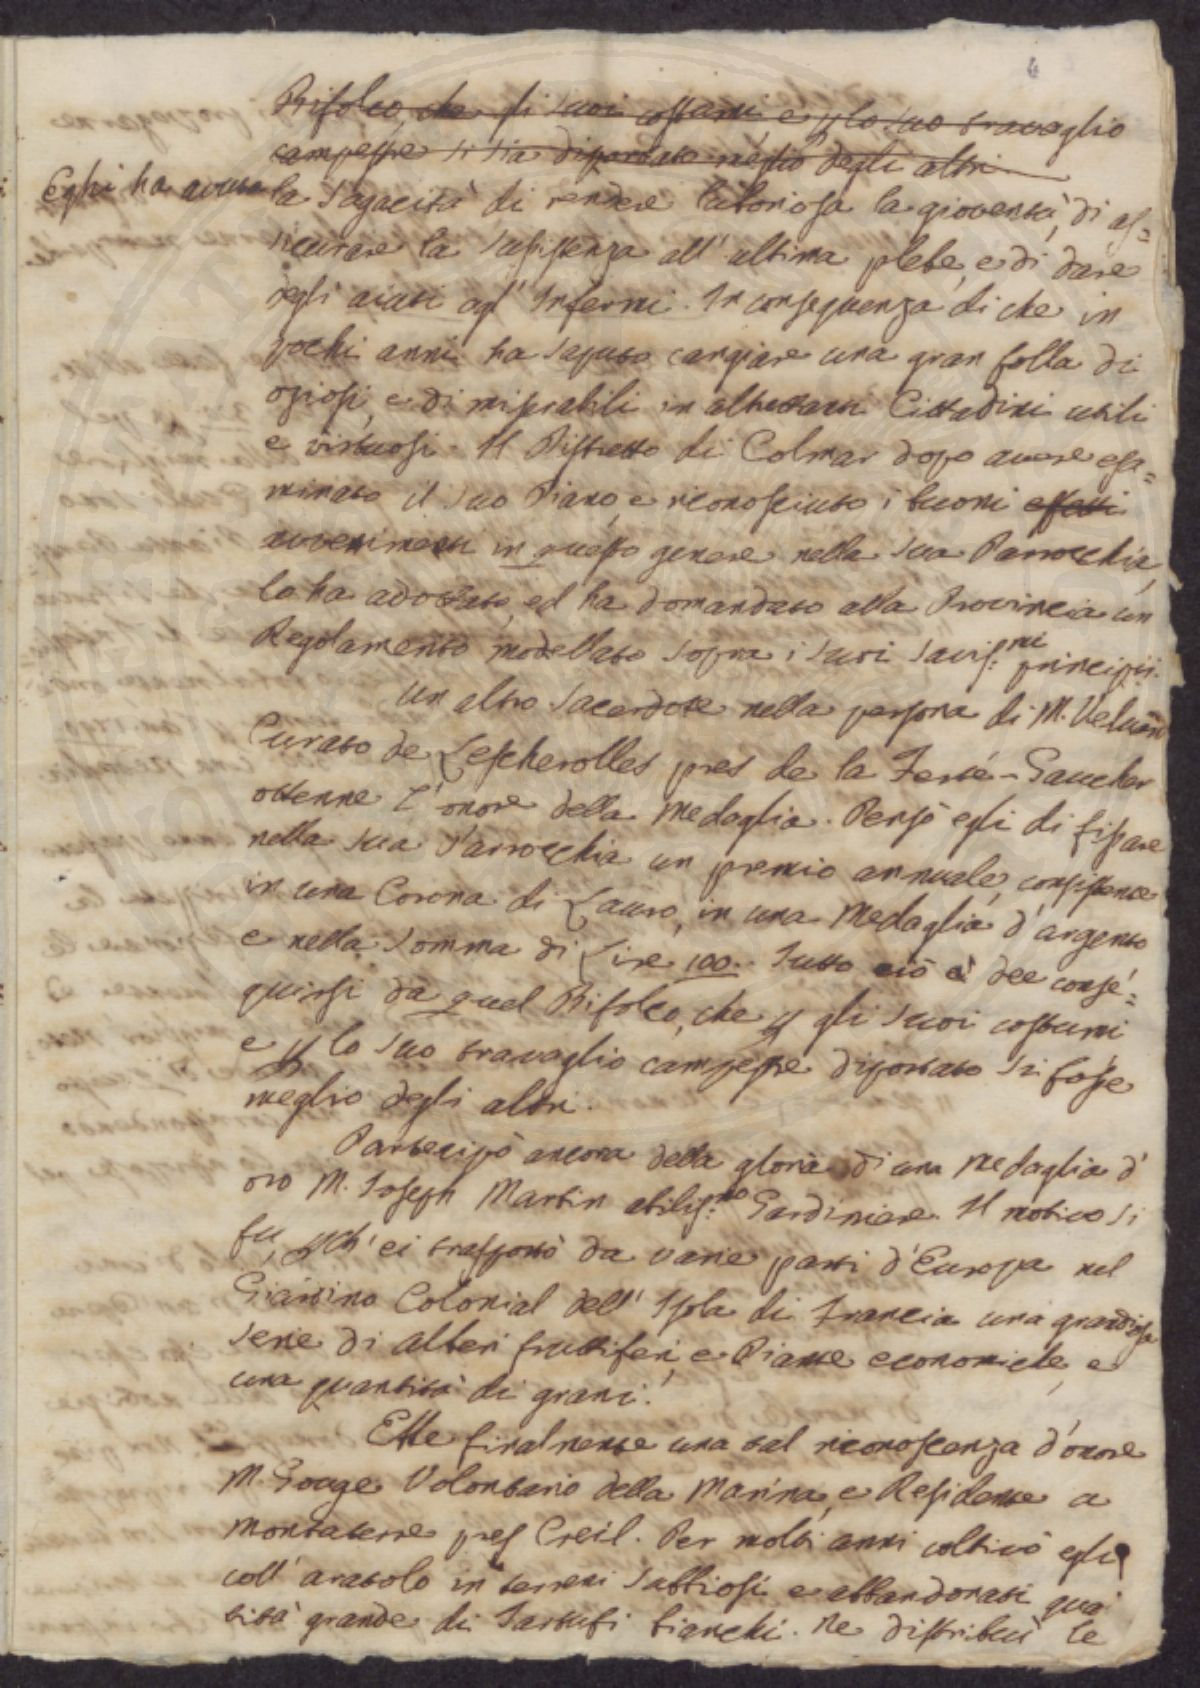 4
Bifolco, che di suoi costumi, e p lo suo travaglio
campestre si sia diportato meglio degli altri
Egli ha avuta la sagacità di rendere laboriosa la gioventù, di as=
sicurare la sussistenza all' ultima plebe, e di dare
degli aiuti agl' Infermi. In conseguenza di che in
pochi anni ha saputo cangiare una gran folla di
oziosi, e di miserabili in altrettanti Cittadini utili
e virtuosi. Il Distretto di Colmar dopo avere esa=
minato il suo Piano, e riconosciuto i buoni effetti
avvenimenti in questo genere nella sua Parrocchia,
lo ha adottato, ed ha domandato alla Provincia un
Regolamento modellato sopra i suoi savis:mi principii.
Un altro Sacerdote nella persona di M.
Curato de Lescherolles pres de la Ferté-Gaucher
ottenne l'onore della Medaglia. Pensò egli di fissare
nella sua Parrocchia un premio annuale, consistente
in una Corona di Lauro, in una Medaglia d'argento
e nella somma di Lire 100. Tutto ciò è dee conse=
guirsi da quel Bifolco, che p gli suoi costumi
e p lo suo travaglio campestre diportato si fosse
meglio degli altri.
Partecipò ancora della gloria di una Medaglia d'
oro M. Joseph Martin abilis:mo Giardiniere. Il motivo si
fu, pch' ei trasportò da varie parti d'Europa nel
Giardino Colonial dell' Isola di Francia una grandiosa
serie di alberi fruttiferi, e Piante economiche, e
una quantità di grani.
Ebbe finalmente una tal riconoscenza d'onore
M. Gouge Volontario della Marina, e Residente a
Montaterre pres Creil. Per molti anni coltivò egli
coll' aratolo in terreni sabbiosi e abbandonati quan
tità grande di Tartufi bianchi. Ne distribuì le